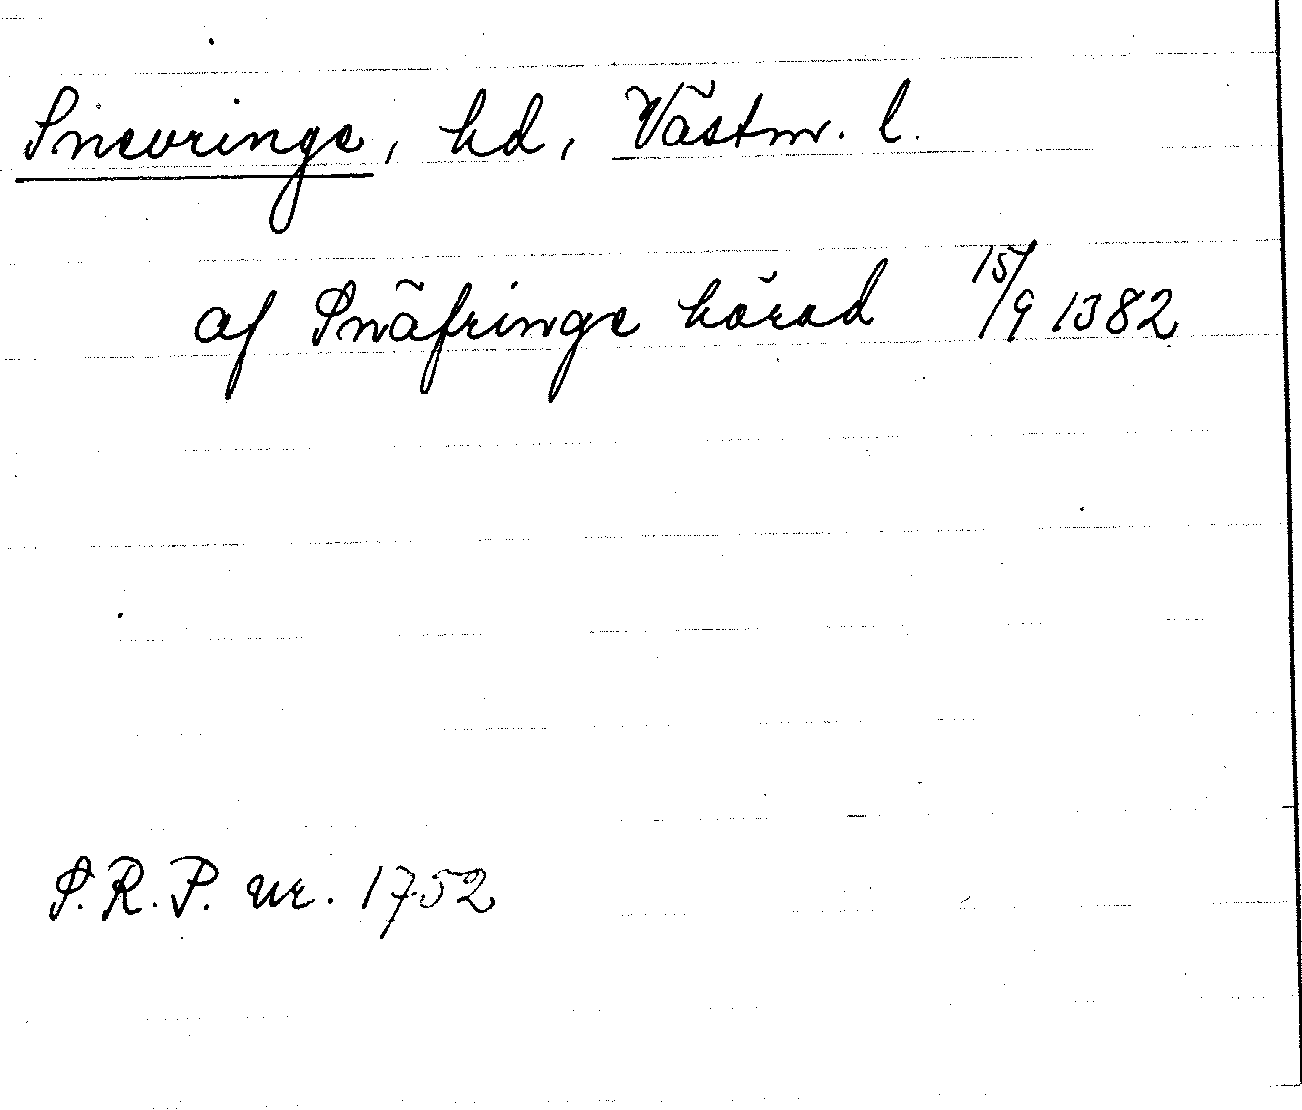 Snevringe, hd, Västm. l.
af Snäfringe härad 15/9 1382
S.R.P. nr. 1752